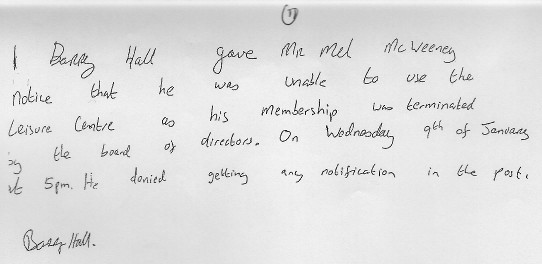 (1)
I Barry Hall gave Mr Mel McWeeney
notice that he was unable to use the
Leisure Centre as his membership was terminated
by the board of directors. On Wednesday 9th of January
at 5pm. He denied getting any notification in the post.
Barry Hall.